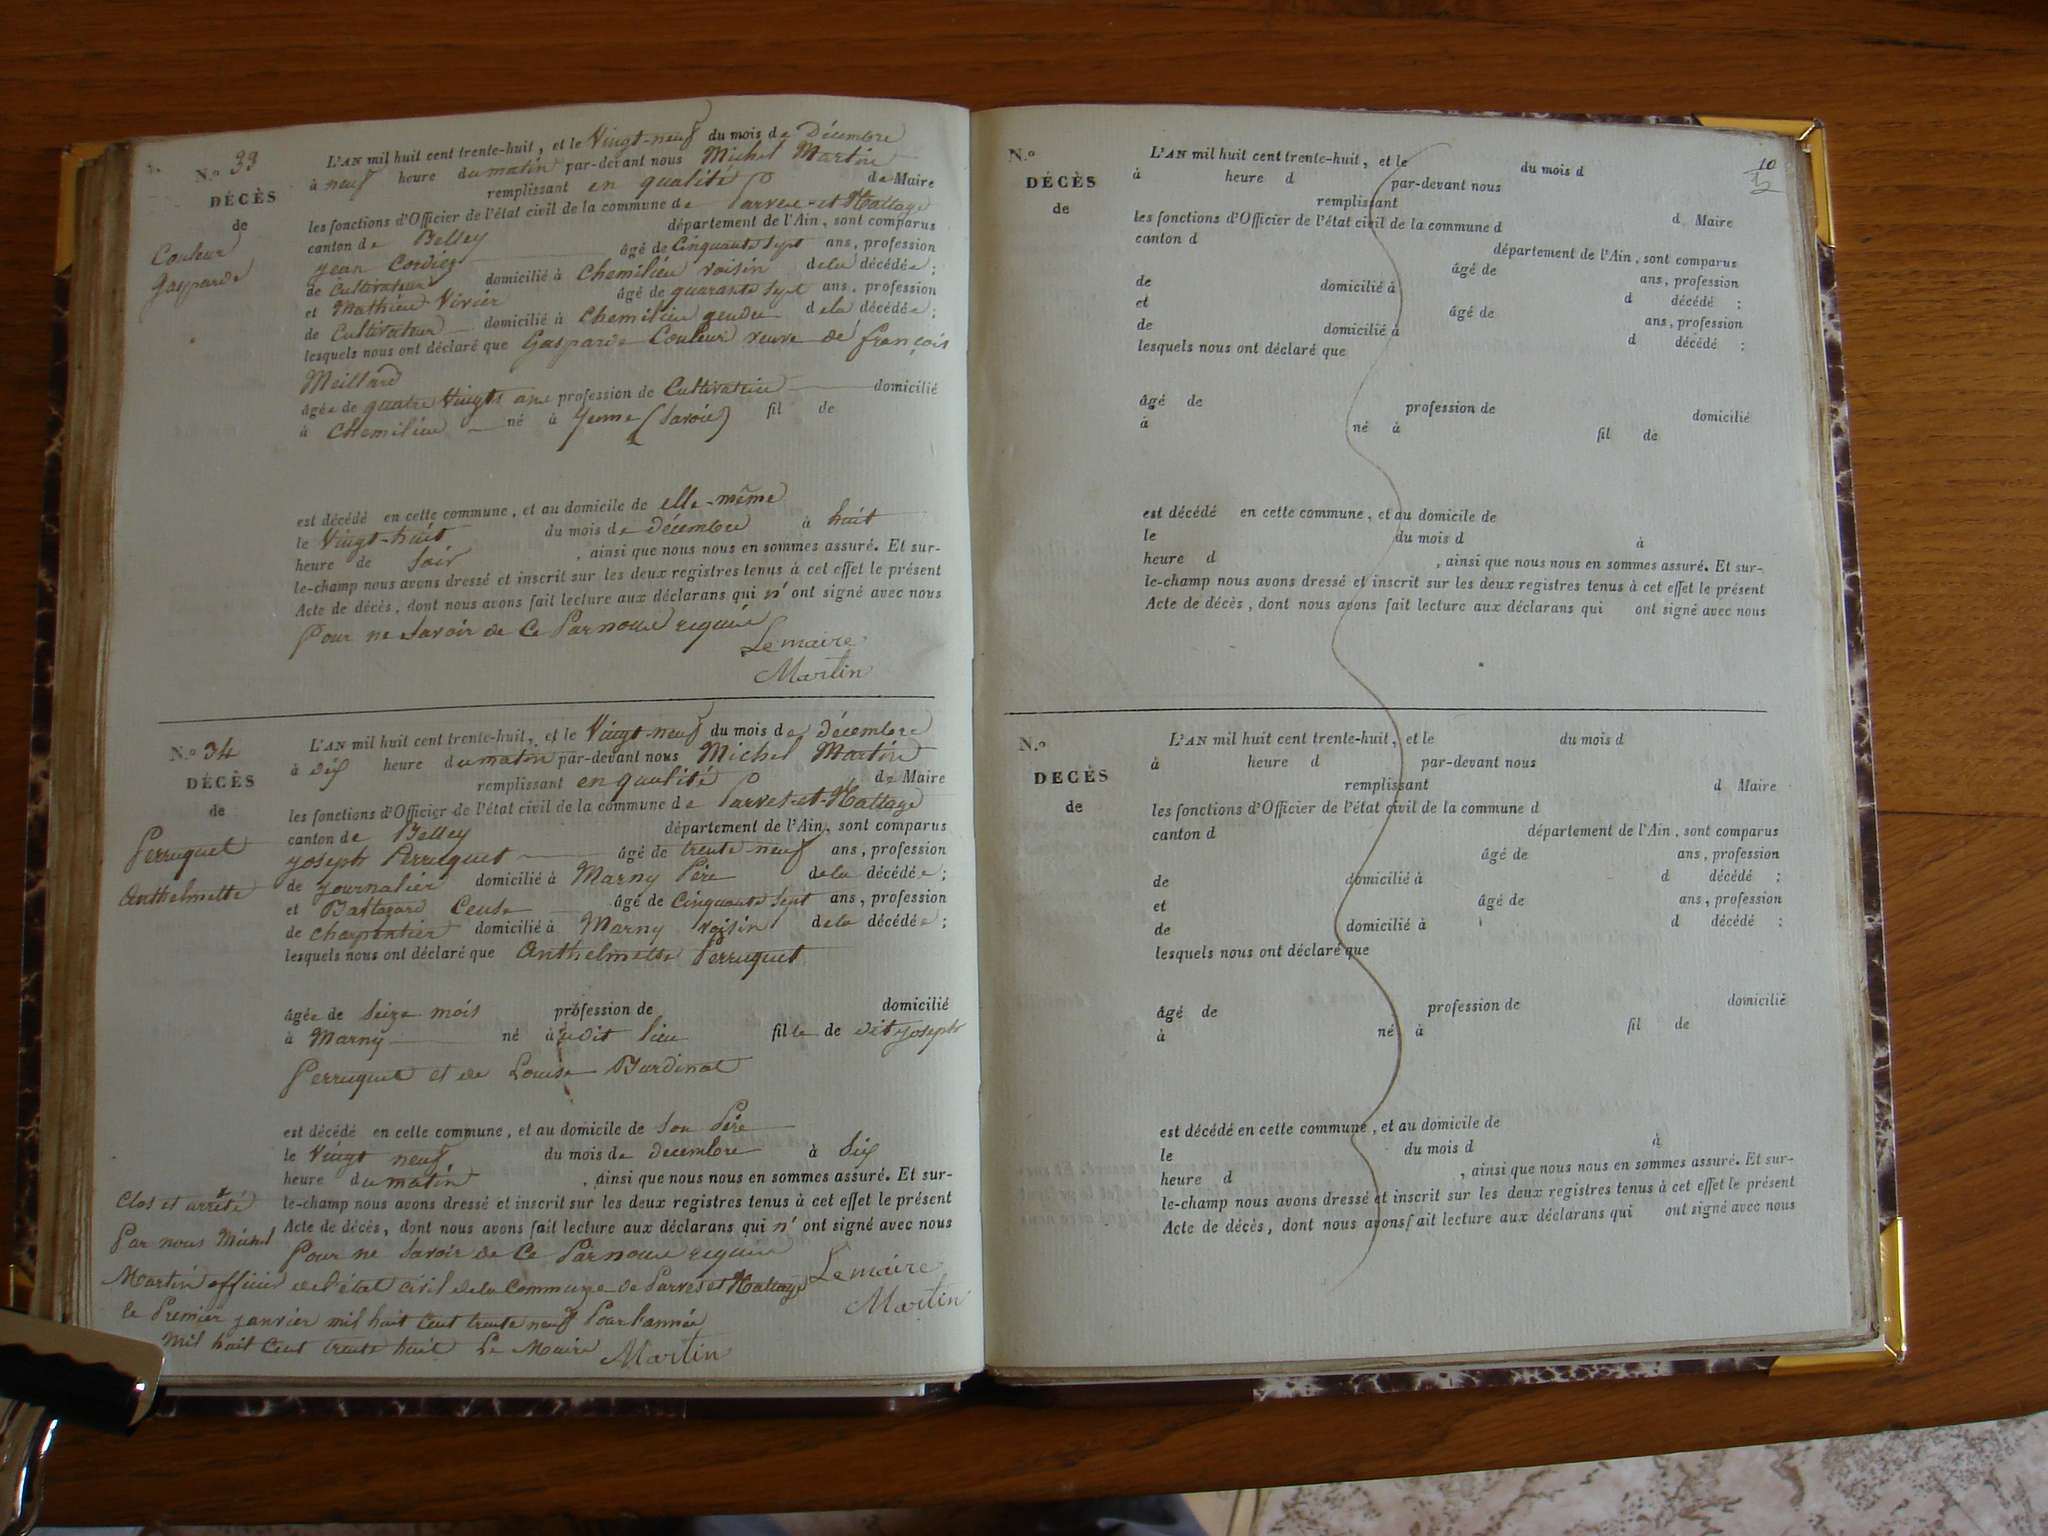 N.o 33
DÉCÈS
de
Couleur
Gasparde
L'AN mil huit cent trente-huit, et le Vingt-neuf du mois de Décembre
à neuf heure du matin par-devant nous Michel Martin
remplissant en qualité de Maire
les fonctions d'Officier de l'état civil de la commune de Parves-et-Nattage
canton de Belley département de l'Ain, sont comparus
Jean Cordier âgé de Cinquante sept ans, profession
de Cultivateur domicilié à Chemilieu voisin de la décédée;
et Mathieu Vivier âgé de quarante sept ans, profession
de Cultivateur domicilié à Chemilieu gendre de la décédée;
lesquels nous ont déclaré que Gasparde Couleur veuve de françois
Meillard
âgée de quatre Vingts ans profession de Cultivatrice domicilié
à Chemilieu né à Yenne (Savoie) fil de
est décédé en cette commune, et au domicile de elle-même
le Vingt-huit du mois de décembre à huit
heure de Soir , ainsi que nous nous en sommes assuré. Et sur-
le-champ nous avons dressé et inscrit sur les deux registres tenus à cet effet le présent
Acte de décès, dont nous avons fait lecture aux déclarans qui n' ont signé avec nous
Pour ne Savoir de Ce Par nous requis
Le maire
Martin
N.o 34
DÉCÈS
de
Perruquet
Anthelmette
L'AN mil huit cent trente-huit, et le Vingt-neuf du mois de décembre
à dix heure du matin par-devant nous Michel Martin
remplissant en qualité de Maire
les fonctions d'Officier de l'état civil de la commune de Parves-et-Nattage
canton de Belley département de l'Ain, sont comparus
Joseph Perruquet âgé de trente neuf ans, profession
de Journalier domicilié à Marny Père de la décédée;
et Baltazard Ceuse âgé de Cinquante sept ans, profession
de Charpentier domicilié à Marny voisin de la décédée;
lesquels nous ont déclaré que Anthelmette Perruquet
âgée de Seize mois profession de domicilié
à Marny né à udit lieu fille de dit Joseph
Perruquet et de Louise Burdinat
est décédé en cette commune, et au domicile de Son Père
le Vingt neuf du mois de decembre à Six
heure du matin , ainsi que nous nous en sommes assuré. Et sur-
le-champ nous avons dressé et inscrit sur les deux registres tenus à cet effet le présent
Acte de décès, dont nous avons fait lecture aux déclarans qui n' ont signé avec nous
Pour ne Savoir de Ce Par nous requis
Le maire
Martin
Clos et arrêté
Par nous Michel
Martin officier de l'état civil de la Commune de Parves et Nattage
le Premier janvier mil huit Cent trente neuf Pour l'année
mil huit Cent trente huit Le Maire Martin
10
N.o
DÉCÈS
de
L'AN mil huit cent trente-huit, et le du mois d
à heure d par-devant nous
remplissant d Maire
les fonctions d'Officier de l'état civil de la commune d
canton d département de l'Ain, sont comparus
âgé de ans, profession
de domicilié à d décédé ;
et âgé de ans, profession
de domicilié à d décédé ;
lesquels nous ont déclaré que
âgé de profession de domicilié
à né à fil de
est décédé en cette commune, et au domicile de
le du mois d à
heure d , ainsi que nous nous en sommes assuré. Et sur-
le-champ nous avons dressé et inscrit sur les deux registres tenus à cet effet le présent
Acte de décès, dont nous avons fait lecture aux déclarans qui ont signé avec nous
N.o
DECÈS
de
L'AN mil huit cent trente-huit, et le du mois d
à heure d par-devant nous
remplissant d Maire
les fonctions d'Officier de l'état civil de la commune d
canton d département de l'Ain, sont comparus
âgé de ans, profession
de domicilié à d décédé ;
et âgé de ans, profession
de domicilié à d décédé ;
lesquels nous ont déclaré que
âgé de profession de domicilié
à né à fil de
est décédé en cette commune, et au domicile de
le du mois d à
heure d , ainsi que nous nous en sommes assuré. Et sur-
le-champ nous avons dressé et inscrit sur les deux registres tenus à cet effet le présent
Acte de décès, dont nous avons fait lecture aux déclarans qui ont signé avec nous